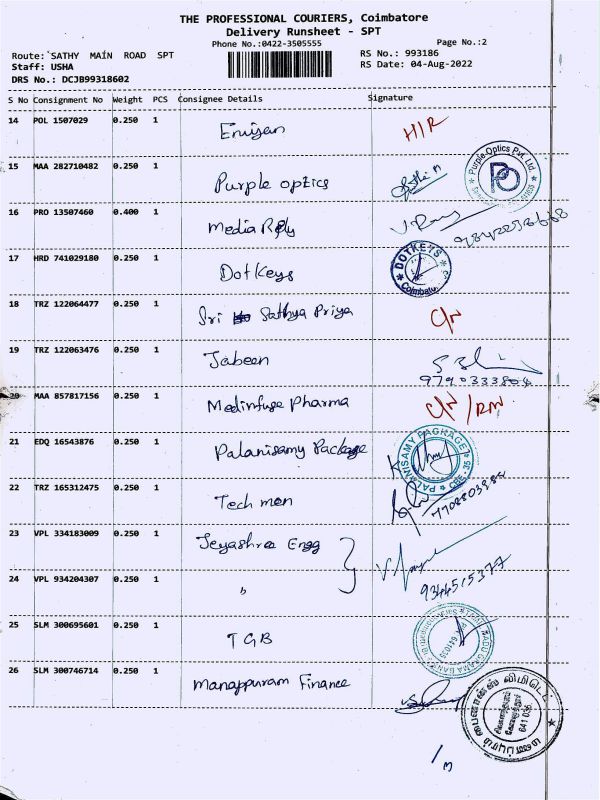 THE PROFESSIONAL COURIERS, Coimbatore
Delivery Runsheet - SPT
Phone No.:0422-3505555
Page No.:2
Route: SATHY MAIN ROAD SPT
RS No.: 993186
Staff: USHA
RS Date: 04-Aug-2022
DRS No.: DCJB99318602
S No Consignment No Weight PCS Consignee Details Signature
14 POL 1507029 0.250 1
15 MAA 282710482 0.250 1 Purple optics
Purple Optics Pvt. Ltd.
PO
16 PRO 13507460 0.400 1 Media
17 HRD 741029180 0.250 1 Dotkeys
DOTKEYS
18 TRZ 122064477 0.250 1 Sri Sathya Priya
19 TRZ 122063476 0.250 1 Jabeen
20 MAA 857817156 0.250 1 Medinfuse Pharma
21 EDQ 16543876 0.250 1 Palanisamy Package
CBE - 35
22 TRZ 165312475 0.250 1 Tech men
23 VPL 334183009 0.250 1 Jeyashree Engg
24 VPL 934204307 0.250 1 "
25 SLM 300695601 0.250 1 TGB
26 SLM 300746714 0.250 1 Manappuram Finance
மணப்புரம் பைனான்ஸ் லிமிடெட்
641 036